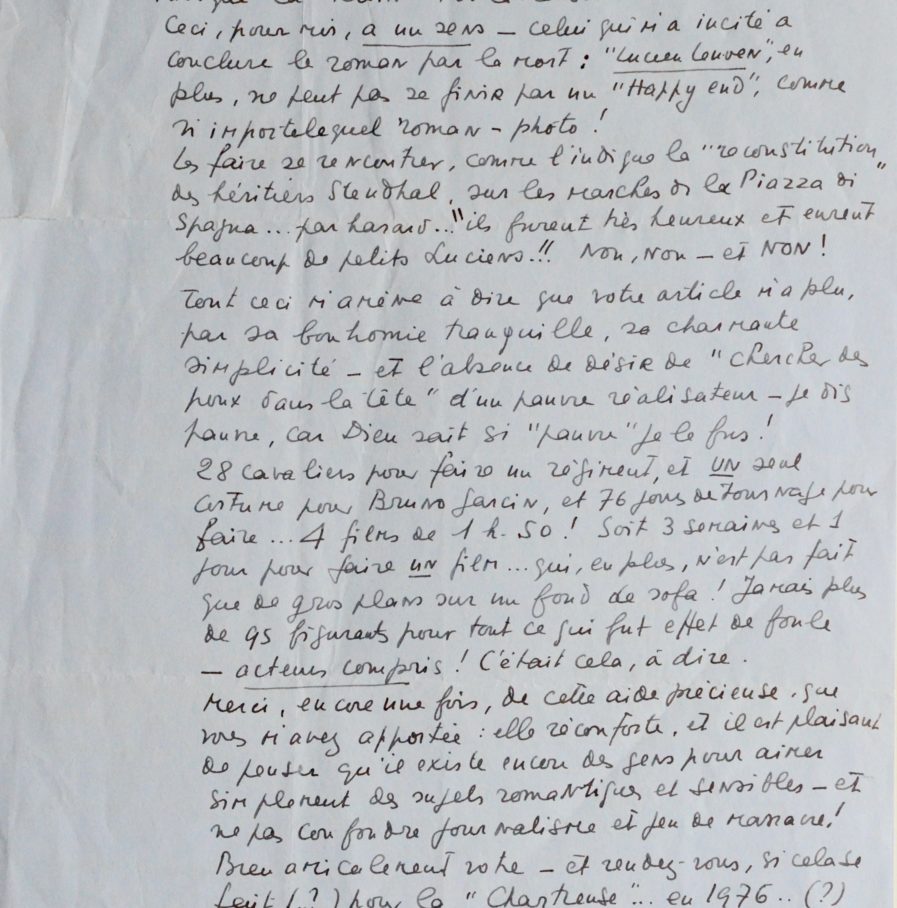 Ceci, pour moi, a un sens – celui qui m'a incité à
conclure le roman par la mort : "Lucien Leuwen", en
plus, ne peut pas se finir par un "Happy end", comme
n'importe lequel roman-photo !
Les faire se rencontrer, comme l'indique la "reconstitution"
des héritiers Stendhal, sur les marches de la Piazza di
Spagna... par hasard..." ils furent très heureux et eurent
beaucoup de petits Luciens!!! Non, non – et NON !
Tout ceci m'amène à dire que votre article m'a plu,
par sa bonhomie tranquille, sa charmante
simplicité – et l'absence de désir de "chercher des
poux dans la tête" d'un pauvre réalisateur – je dis
pauvre, car Dieu sait si "pauvre" je le fus !
28 cavaliers pour faire un régiment, et UN seul
costume pour Bruno Garcin, et 76 jours de tournage pour
faire... 4 films de 1 h. 50 ! Soit 3 semaines et 1
jour pour faire un film... qui, en plus, n'est pas fait
que de gros plans sur un fond de sofa ! Jamais plus
de 95 figurants pour tout ce qui fut effet de foule
– acteurs compris ! C'était cela, à dire.
Merci, encore une fois, de cette aide précieuse que
vous m'avez apportée : elle réconforte, et il est plaisant
de penser qu'il existe encore des gens pour aimer
simplement des sujets romantiques et sensibles – et
ne pas confondre journalisme et jeu de massacre!
Bien amicalement votre – et rendez-vous, si cela se
fait (..?) pour la "Chartreuse"... en 1976.. (?)